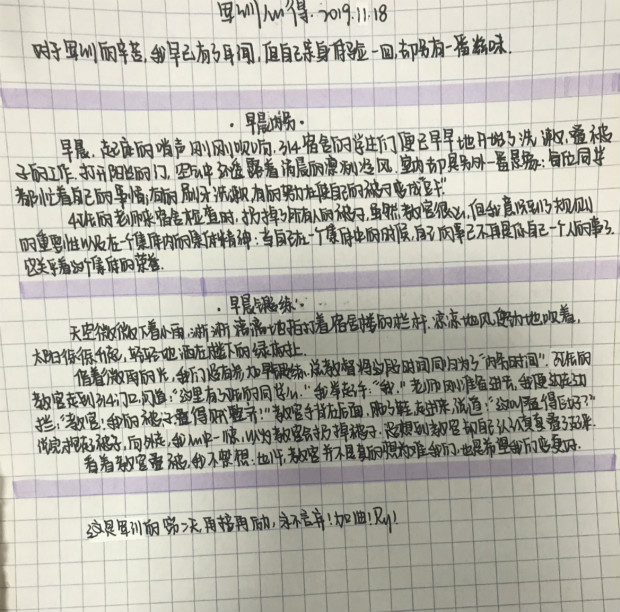 军训心得. 2019.11.18
对于军训的辛苦,我早已有了耳闻,但自己亲身体验一回,却另有一番滋味.
·早晨内务·
早晨,起床的哨声刚刚吹响,314宿舍的学生们便已早早地开始了洗漱,叠被
子的工作.打开阳台的门,空气中弥漫着清晨的凛冽冷风,室内却具另外一番景象:每位同学
都忙着自己的事情,有的刷牙洗漱,有的努力在使自己的被子变成"豆干"
的老师来宿舍检查时,扔掉了所有人的被子,虽然教官很凶,但我意识到了规则
的重要性以及在一个集体内的集体精神:当自己在一个集体中的时候,自己的事已不再是你自己一个人的事了.
它关乎着这个集体的荣誉.
·早晨与晨练·
天空微微下着小雨,淅淅沥沥地拍打着宿舍楼的栏杆.凉凉地风努力地吹着,
太阳徐徐升起,轻轻地洒在楼下的绿植上.
借着微弱的光,我们没有参加早晨锻炼,总教官将这段时间同归为了"内务时间".孔氏的
教官走到314门口,问道:"这里有孔氏的同学么."我举起手:"我."老师刚准备进去,我便边走边
拦,"教官!我的被子叠得可整齐!!"教官手背在后面,刚踏进去出来,说道:"这叫叠得好吗?"
说完抱起被子,向外走,我心中一惊,以为教官要扔掉被子.没想到教官却自己认认真真叠了起来.
看着教官叠被,我不禁想:也许,教官并不是真的想为难我们,也是希望我们变更好.
这是军训的第二天,再接再励,永不言弃!加油!Ry!